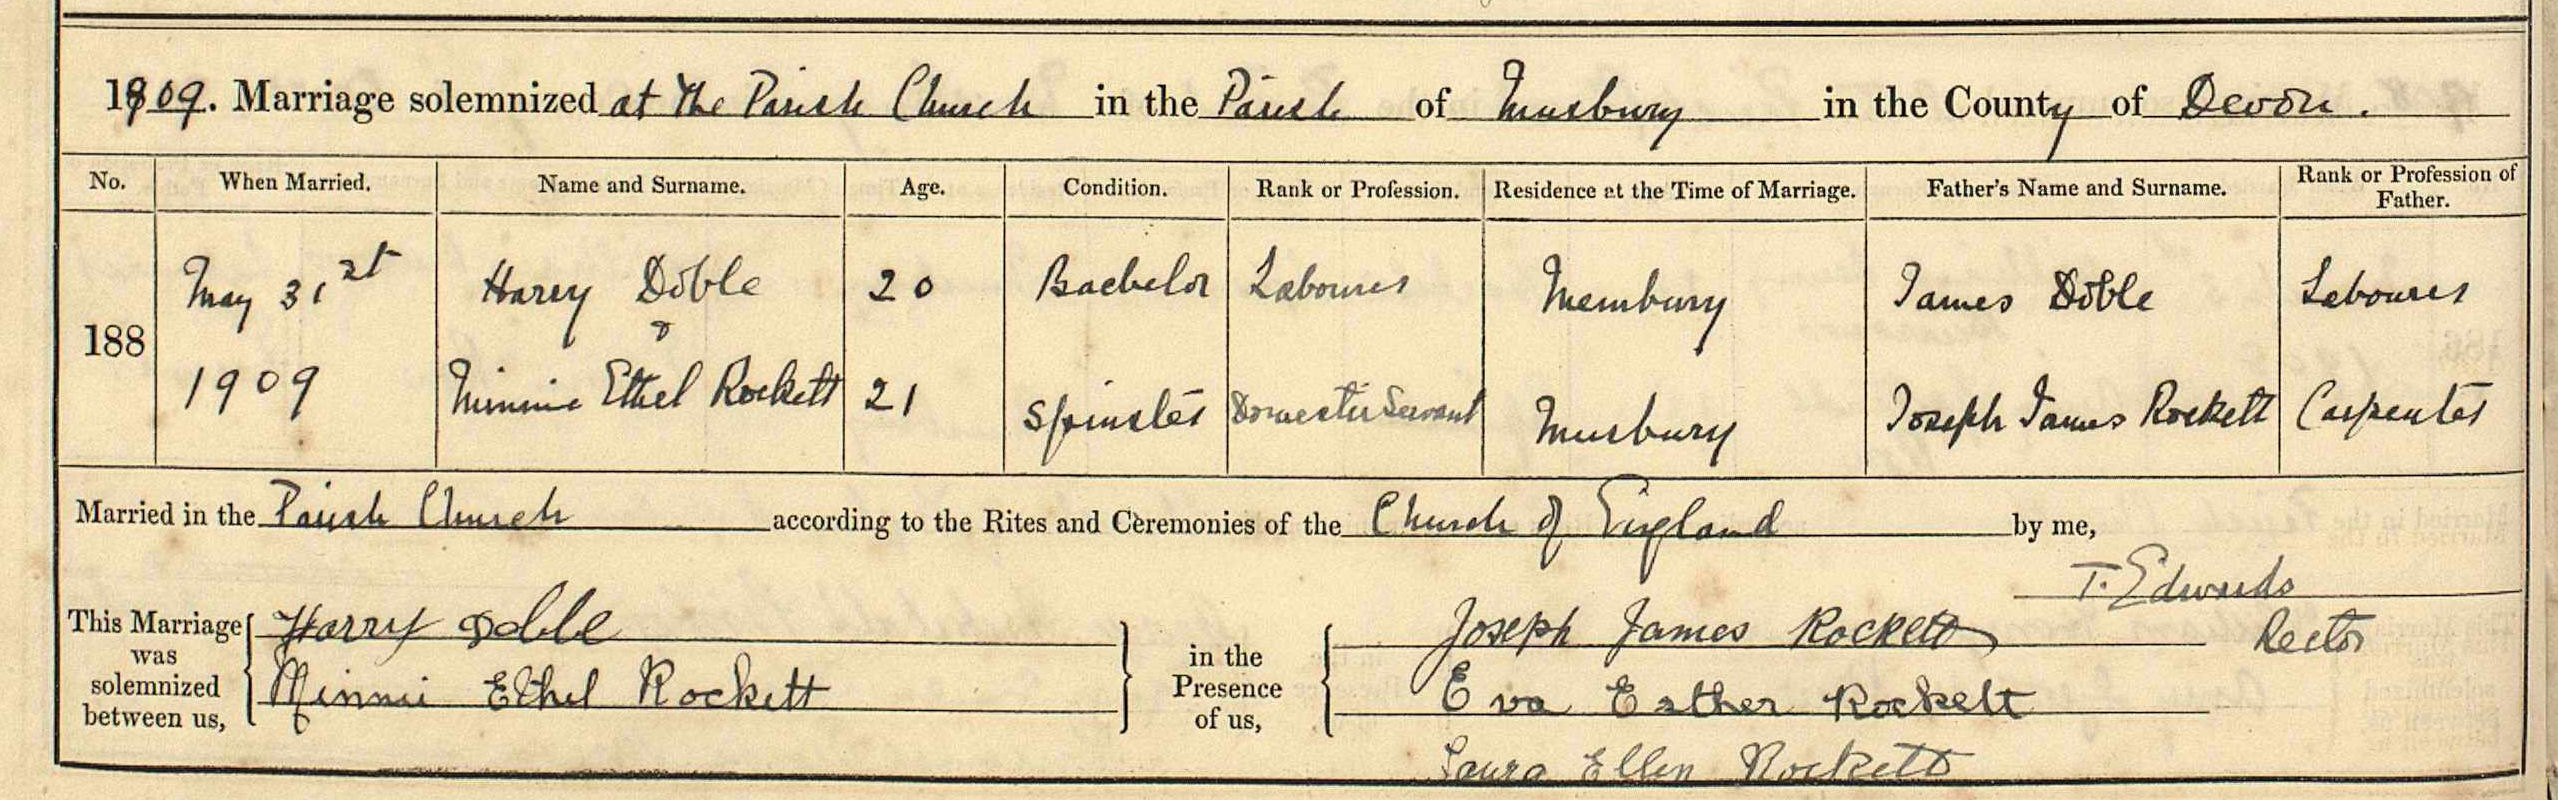 1909. Marriage solemnized at the Parish Church in the Parish of Musbury in the County of Devon.
No. When Married. Name and Surname. Age. Condition. Rank or Profession. Residence at the Time of Marriage. Father's Name and Surname. Rank or Profession of Father.
188
May 31st Harry Doble 20 Bachelor Labourer Membury James Doble Labourer
&
1909 Minnie Ethel Rockett 21 Spinster Domestic Servant Musbury Joseph James Rockett Carpenter
Married in the Parish Church according to the Rites and Ceremonies of the Church of England by me,
T. Edwards
Rector
This Marriage was solemnized between us,
Harry Doble
Minnie Ethel Rockett
in the Presence of us,
Joseph James Rockett
Eva Esther Rockett
Laura Ellen Rockett